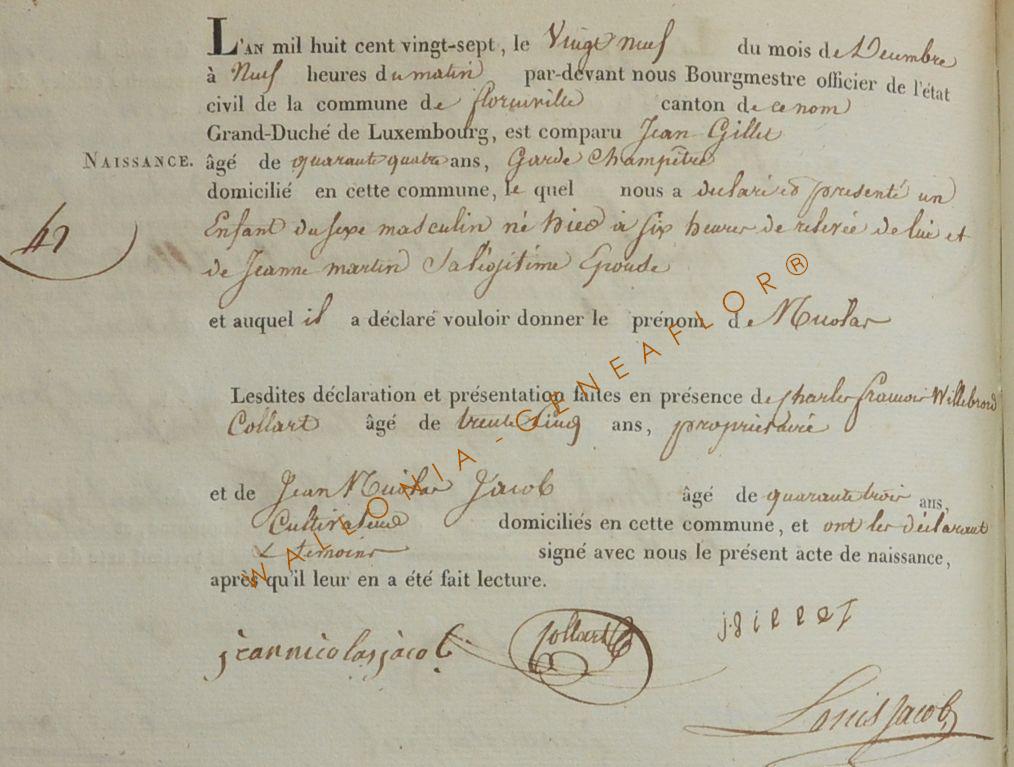 L'AN mil huit cent vingt-sept, le Vingt neuf du mois de Decembre
à Neuf heures du matin par-devant nous Bourgmestre officier de l'état
civil de la commune de florenville canton de ce nom
Grand-Duché de Luxembourg, est comparu Jean Gillet
NAISSANCE. âgé de quarante quatre ans, Garde Champêtre
domicilié en cette commune, le quel nous a declaré et presenté un
Enfant du sexe masculin né hier à six heures de relevée de lui et
de Jeanne martin Sa légitime Epouse
et auquel il a déclaré vouloir donner le prénom de Nicolas
Lesdites déclaration et présentation faites en présence de Charles françois Willebrord
Collart âgé de trente Cinq ans, propriétaire
et de Jean Nicolas Jacob âgé de quarante trois ans,
Cultivateur domiciliés en cette commune, et ont les déclarant
& temoins signé avec nous le présent acte de naissance,
après qu'il leur en a été fait lecture.
jeannicolasjacob Collart j-gillet
Louis Jacob
WALLONIA-GENEAFLOR®